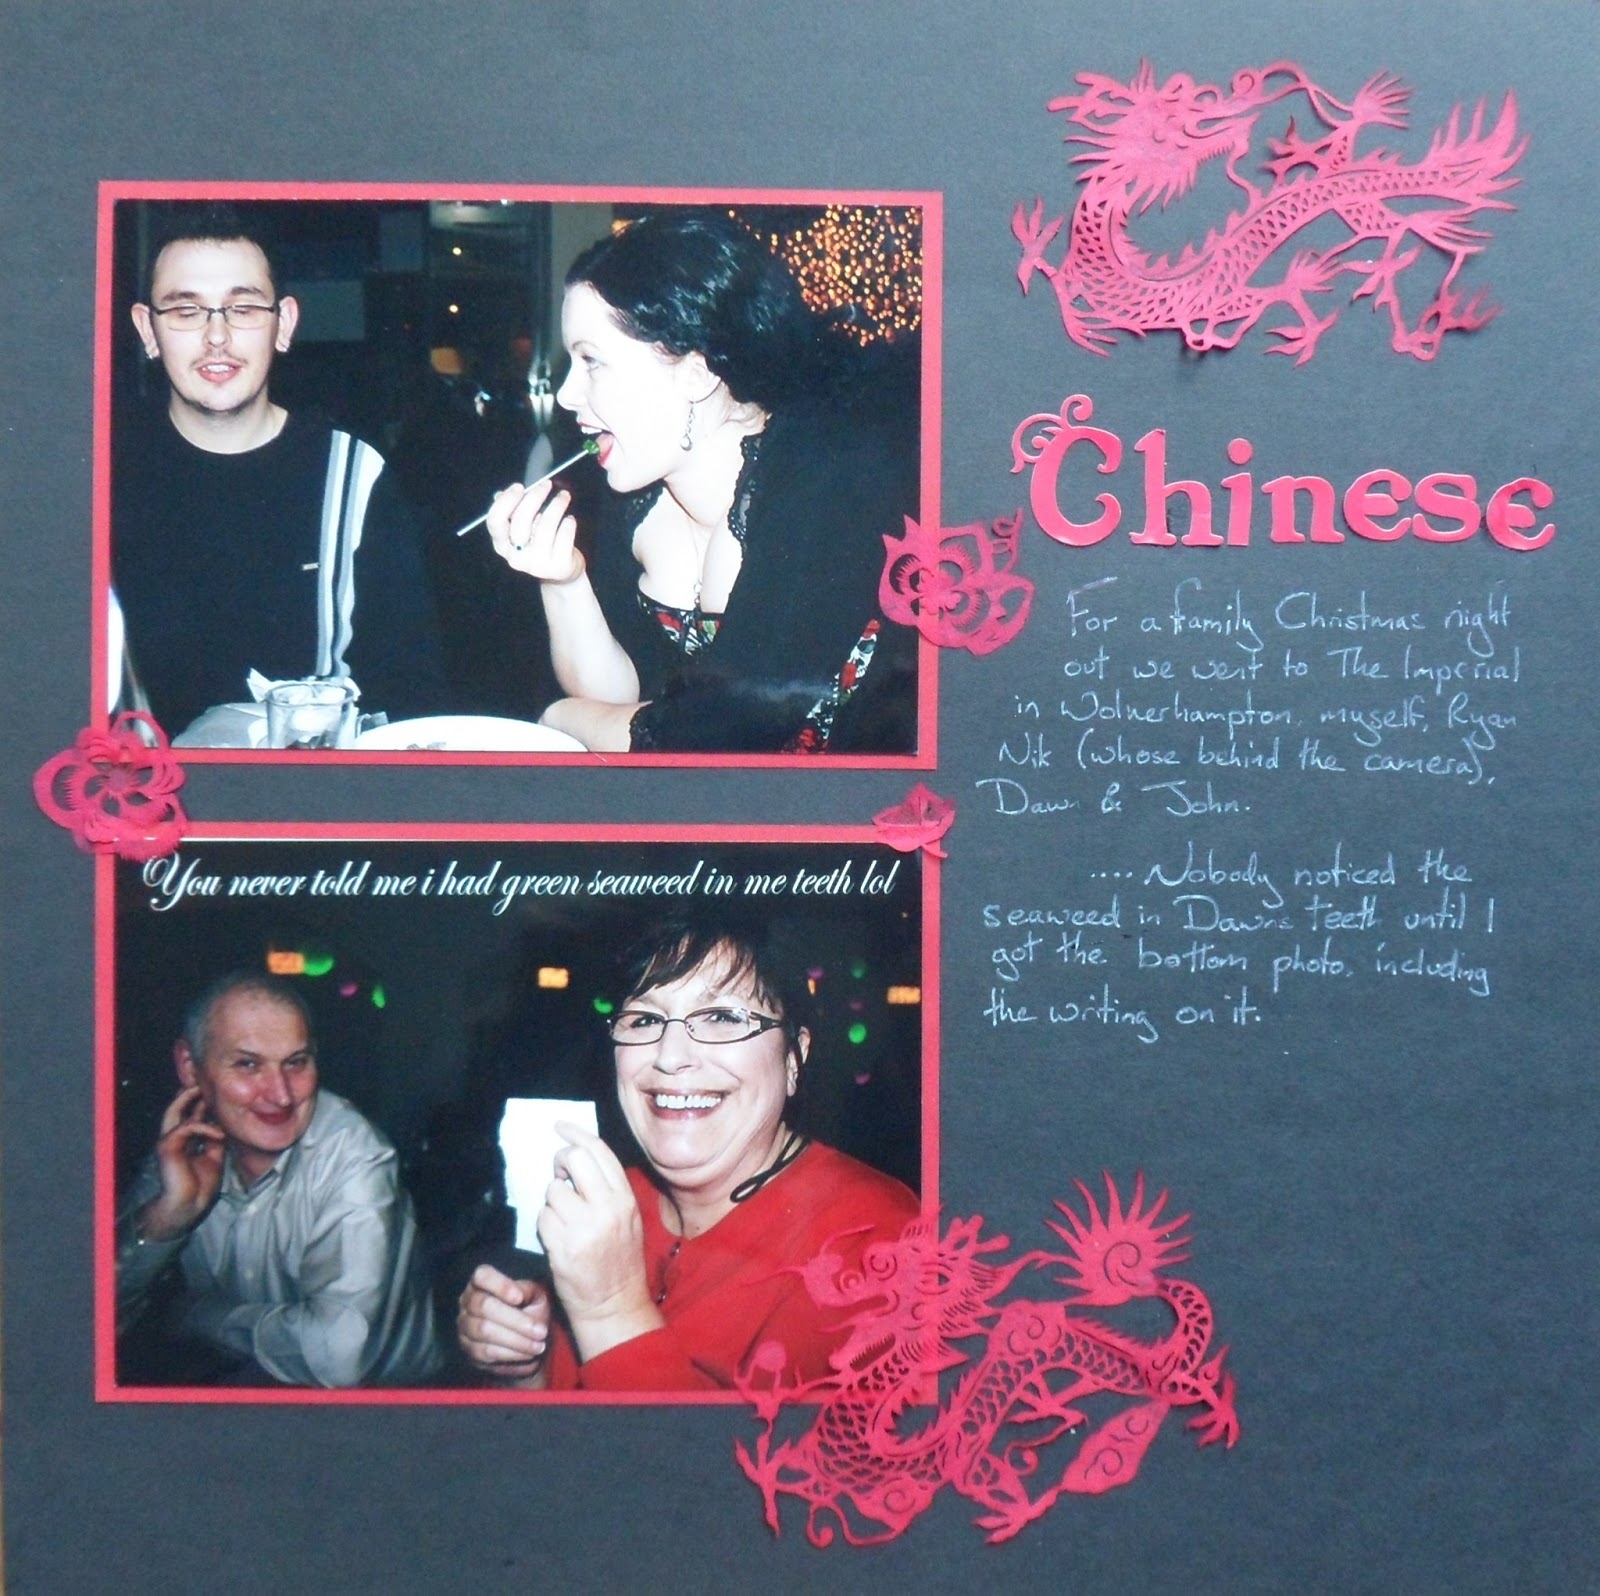 Chinese
For a family Christmas night
out we went to The Imperial
in Wolverhampton, myself, Ryan
Nik (whose behind the camera),
Dawn & John.
.... Nobody noticed the
seaweed in Dawns teeth until I
got the bottom photo, including
the writing on it.
You never told me i had green seaweed in me teeth lol